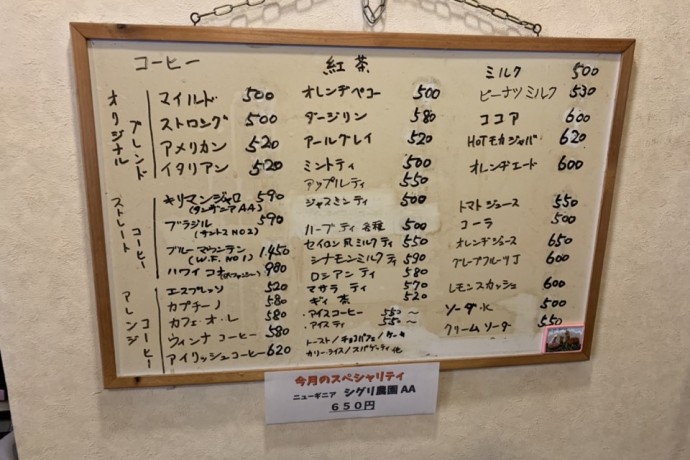 コーヒー
オリジナル
ブレンド
マイルド 500
ストロング 500
アメリカン 520
イタリアン 520
ストレート
コーヒー
キリマンジャロ 590
(タンザニアAA)
ブラジル 590
(サントスNO2)
ブルーマウンテン 1,450
(W.F. NO1)
ハワイコナ 980
アレンジ
コーヒー
エスプレッソ 520
カプチーノ 580
カフェ・オ・レ 580
ウィンナコーヒー 580
アイリッシュコーヒー 620
紅茶
オレンヂペコー 500
ダージリン 580
アールグレイ 520
ミントティ 500
アップルティ 550
ジャスミンティ 500
ハーブティ各種 500
セイロン風ミルクティ 550
シナモンミルクティ 590
ロシアンティ 580
マサラティ 570
ギィ茶 520
・アイスコーヒー 550~
・アイスティ 550~
トースト/チョコパフェ/ケーキ
カリーライス/スパゲーティ他
ミルク 500
ピーナツミルク 530
ココア 600
HOTモカジャバ 620
オレンヂエード 600
トマトジュース 550
コーラ 500
オレンヂジュース 650
グレープフルーツJ 600
レモンスカッシュ 600
ソーダ水 500
クリームソーダ 550
今月のスペシャリティ
ニューギニア シグリ農園AA
650円